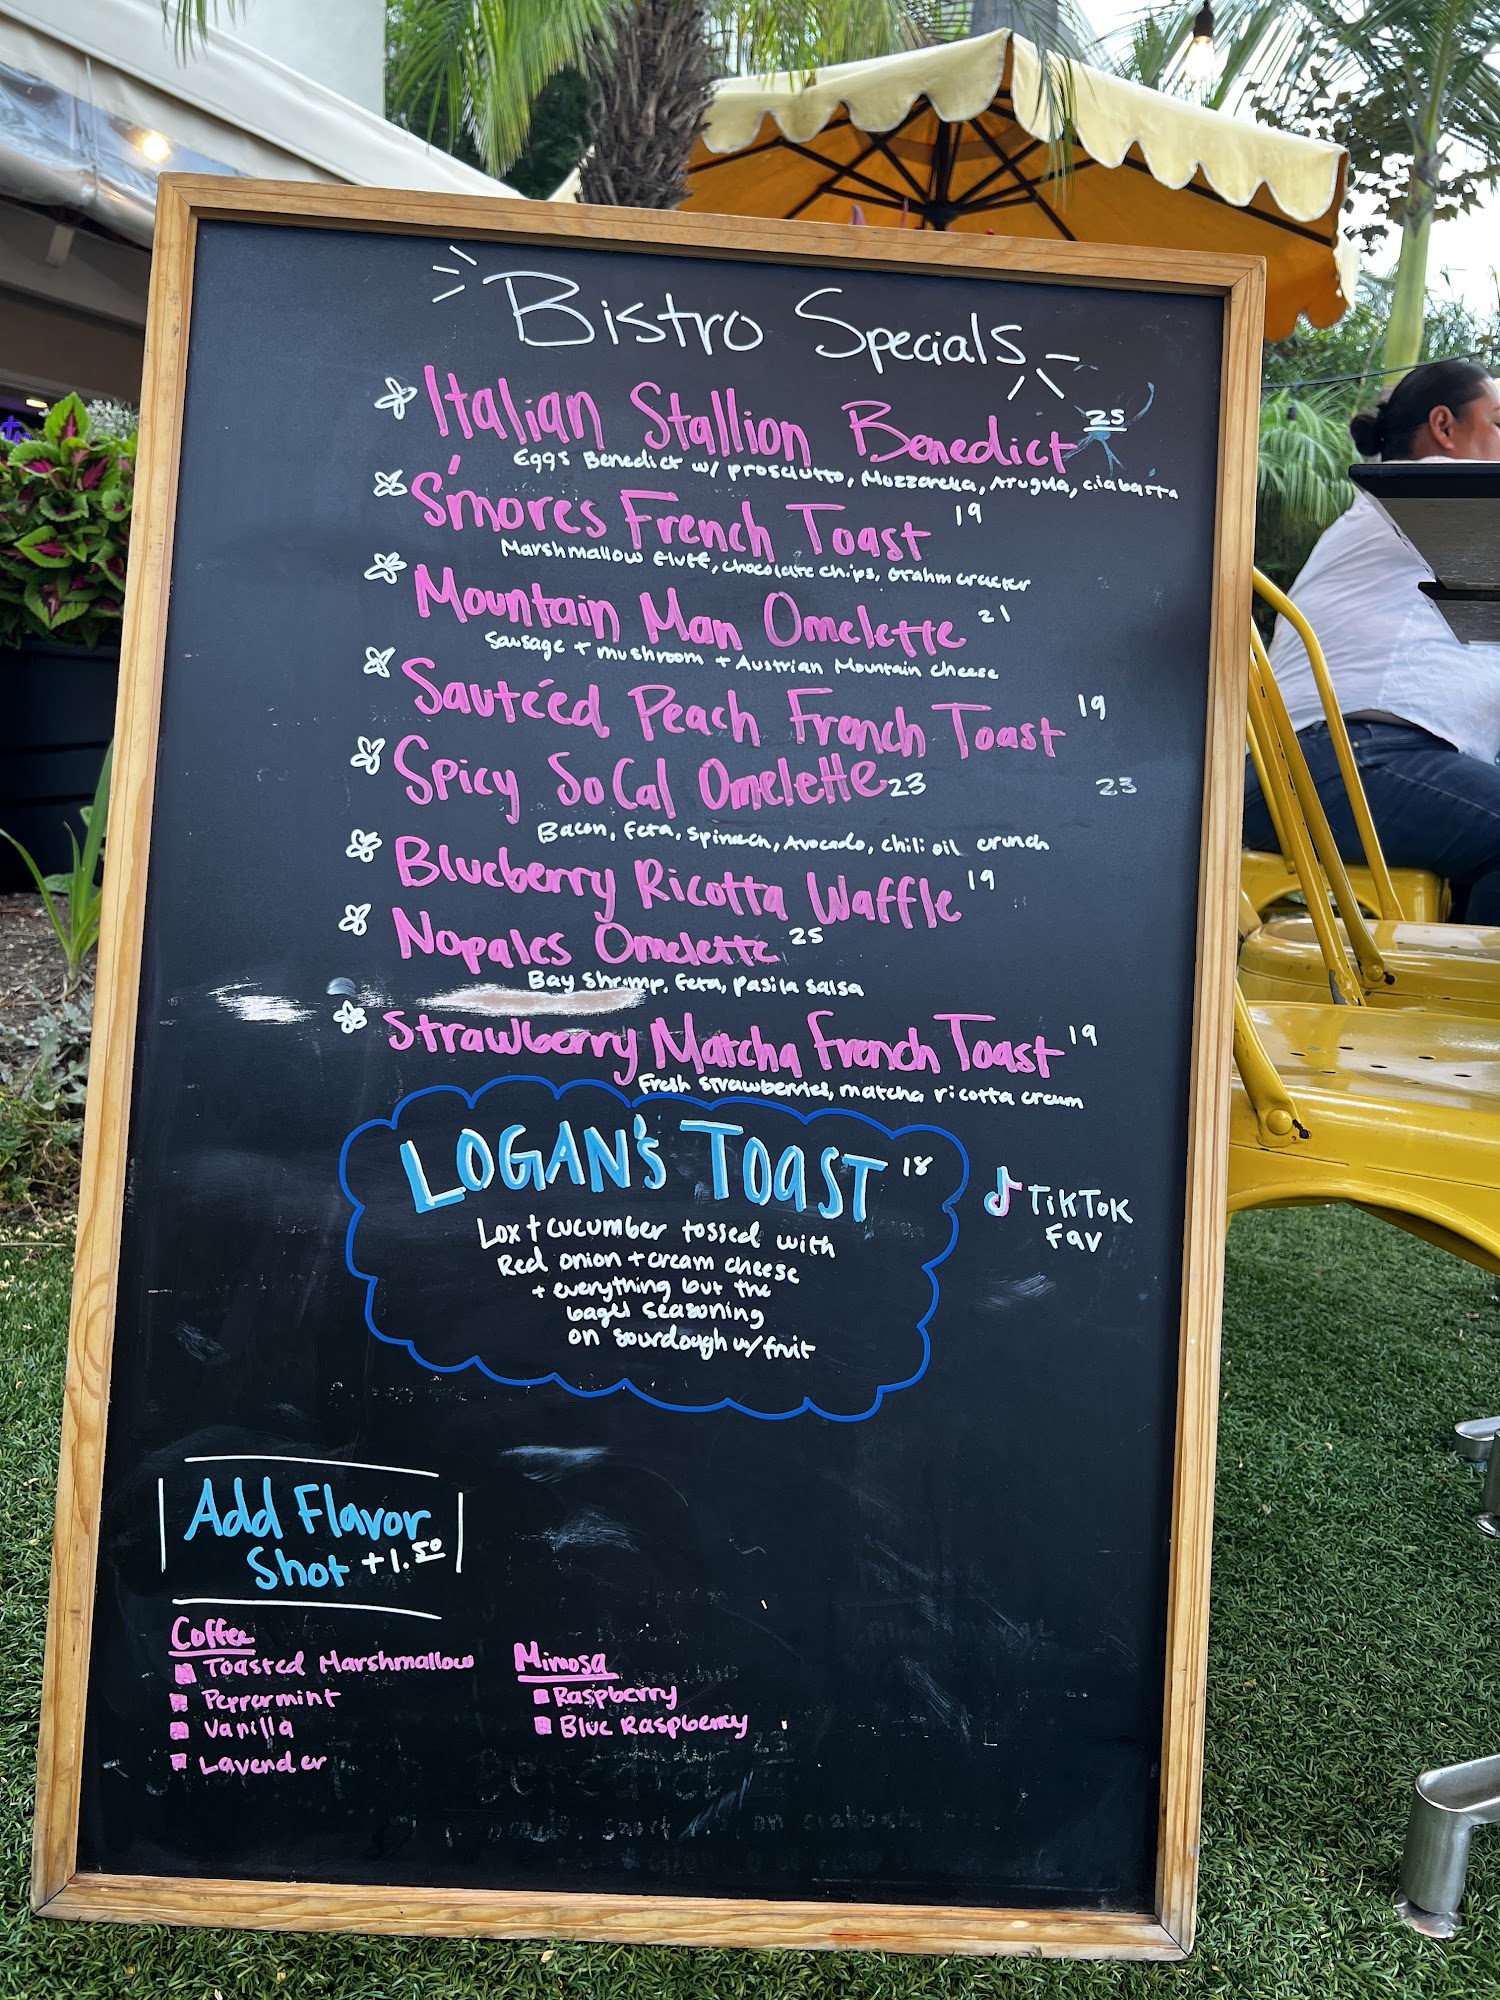 Bistro Specials
Italian Stallion Benedict 25
Eggs Benedict w/ prosciutto, Mozzarella, Arugula, ciabatta
S'mores French Toast 19
Marshmallow fluff, chocolate chips, Grahm cracker
Mountain Man Omelette 21
Sausage + mushroom + Austrian Mountain cheese
Sautéed Peach French Toast 19
Spicy SoCal Omelette 23 23
Bacon, feta, spinach, Avocado, chili oil crunch
Blueberry Ricotta Waffle 19
Nopales Omelette 25
Bay shrimp, feta, pasilla salsa
Strawberry Matcha French Toast 19
Fresh strawberries, matcha ricotta cream
LOGAN'S TOAST 18
Lox + cucumber tossed with
Red onion + cream cheese
+ everything but the
bagel seasoning
on sourdough w/ fruit
TikTok
Fav
Add Flavor
Shot +1.50
Coffee
Toasted Marshmallow
Peppermint
Vanilla
Lavender
Mimosa
Raspberry
Blue Raspberry